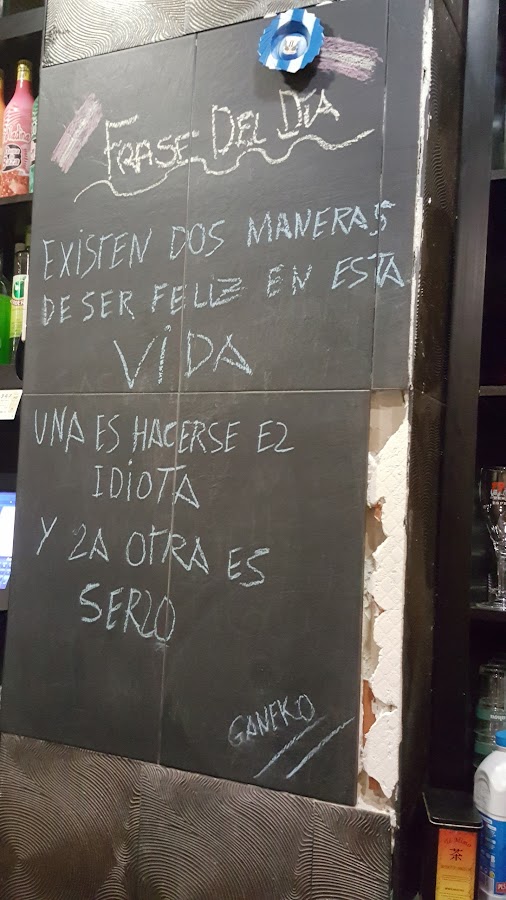 FRASE DEL DÍA
EXISTEN DOS MANERAS
DE SER FELIZ EN ESTA
VIDA
UNA ES HACERSE EL
IDIOTA
Y LA OTRA ES
SERLO
GANEKO
茶